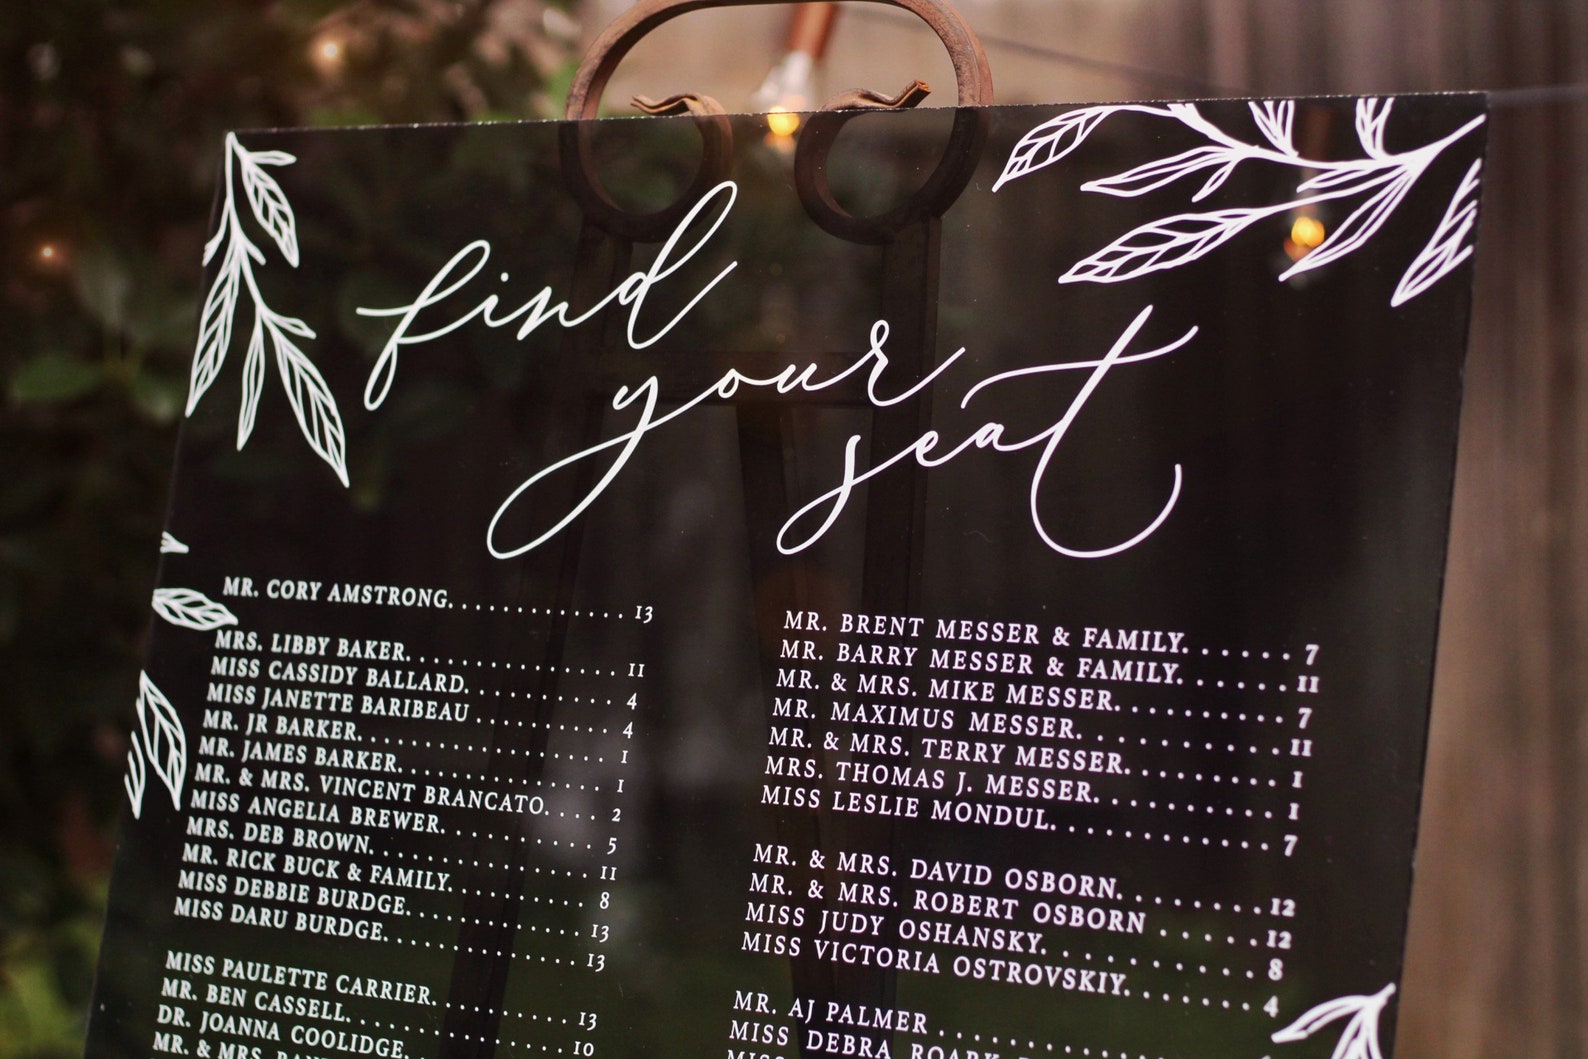 find
your
seat
MR. CORY AMSTRONG. . . . . . . . . . . . . 13
MRS. LIBBY BAKER. . . . . . . . . . . . . . . . 11
MISS CASSIDY BALLARD. . . . . . . . . . . 4
MISS JANETTE BARIBEAU . . . . . . . . . . 4
MR. JR BARKER. . . . . . . . . . . . . . . . . . . 1
MR. JAMES BARKER. . . . . . . . . . . . . . . . 1
MR. & MRS. VINCENT BRANCATO. . . . 2
MISS ANGELIA BREWER. . . . . . . . . . . 5
MRS. DEB BROWN. . . . . . . . . . . . . . . . . 11
MR. RICK BUCK & FAMILY. . . . . . . . . . 8
MISS DEBBIE BURDGE. . . . . . . . . . . . . 13
MISS DARU BURDGE. . . . . . . . . . . . . . . 13
MISS PAULETTE CARRIER. . . . . . . . . . 13
MR. BEN CASSELL. . . . . . . . . . . . . . . . 10
DR. JOANNA COOLIDGE.
MR. & MRS.
MR. BRENT MESSER & FAMILY. . . . . . 7
MR. BARRY MESSER & FAMILY. . . . . . 11
MR. & MRS. MIKE MESSER. . . . . . . . . . 7
MR. MAXIMUS MESSER. . . . . . . . . . . . . 11
MR. & MRS. TERRY MESSER. . . . . . . . . 1
MRS. THOMAS J. MESSER. . . . . . . . . . . 1
MISS LESLIE MONDUL. . . . . . . . . . . . . 7
MR. & MRS. DAVID OSBORN. . . . . . . . 12
MR. & MRS. ROBERT OSBORN . . . . . . 12
MISS JUDY OSHANSKY. . . . . . . . . . . . . 8
MISS VICTORIA OSTROVSKIY. . . . . . . 4
MR. AJ PALMER . . . . . . . . . . . . . . .
MISS DEBRA ROARK